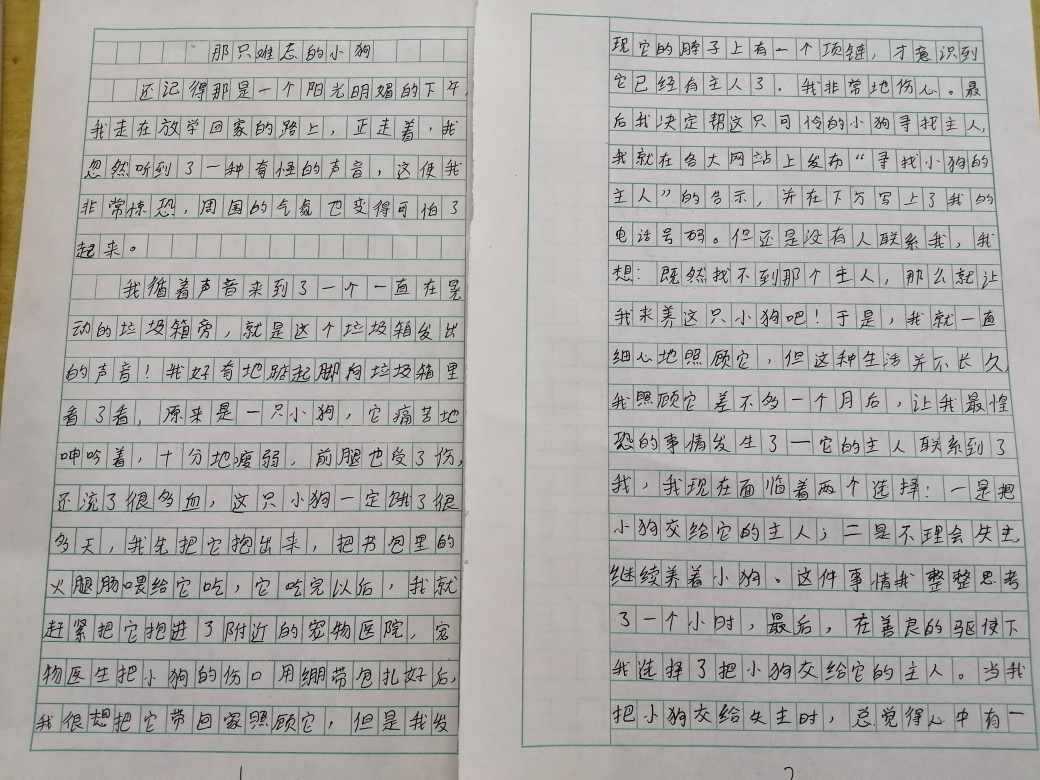 那只难忘的小狗
还记得那是一个阳光明媚的下午,
我走在放学回家的路上，正走着，我
忽然听到了一种奇怪的声音，这使我
非常惊恐，周围的气氛也变得可怕了
起来。
我循着声音来到了一个一直在晃
动的垃圾箱旁，就是这个垃圾箱发出
的声音！我好奇地踮起脚向垃圾箱里
看了看，原来是一只小狗，它痛苦地
呻吟着，十分地瘦弱，前腿也受了伤,
还流了很多血，这只小狗一定饿了很
多天，我先把它抱出来，把书包里的
火腿肠喂给它吃，它吃完以后，我就
赶紧把它抱进了附近的宠物医院，宠
物医生把小狗的伤口用绷带包扎好后,
我很想把它带回家照顾它，但是我发
1
现它的脖子上有一个项链，才意识到
它已经有主人了．我非常地伤心。最
后我决定帮这只可怜的小狗寻找主人,
我就在各大网站上发布“寻找小狗的
主人”的告示，并在下方写上了我的
电话号码。但还是没有人联系我，我
想：既然找不到那个主人，那么就让
我来养这只小狗吧！于是，我就一直
细心地照顾它，但这种生活并不长久
我照顾它差不多一个月后，让我最惶
恐的事情发生了—它的主人联系到了
我，我现在面临着两个选择：一是把
小狗交给它的主人；二是不理会失主
继续养着小狗。这件事情我整整思考
了一个小时，最后，在善良的驱使下
我选择了把小狗交给它的主人。当我
把小狗交给失主时，总觉得心中有一
2